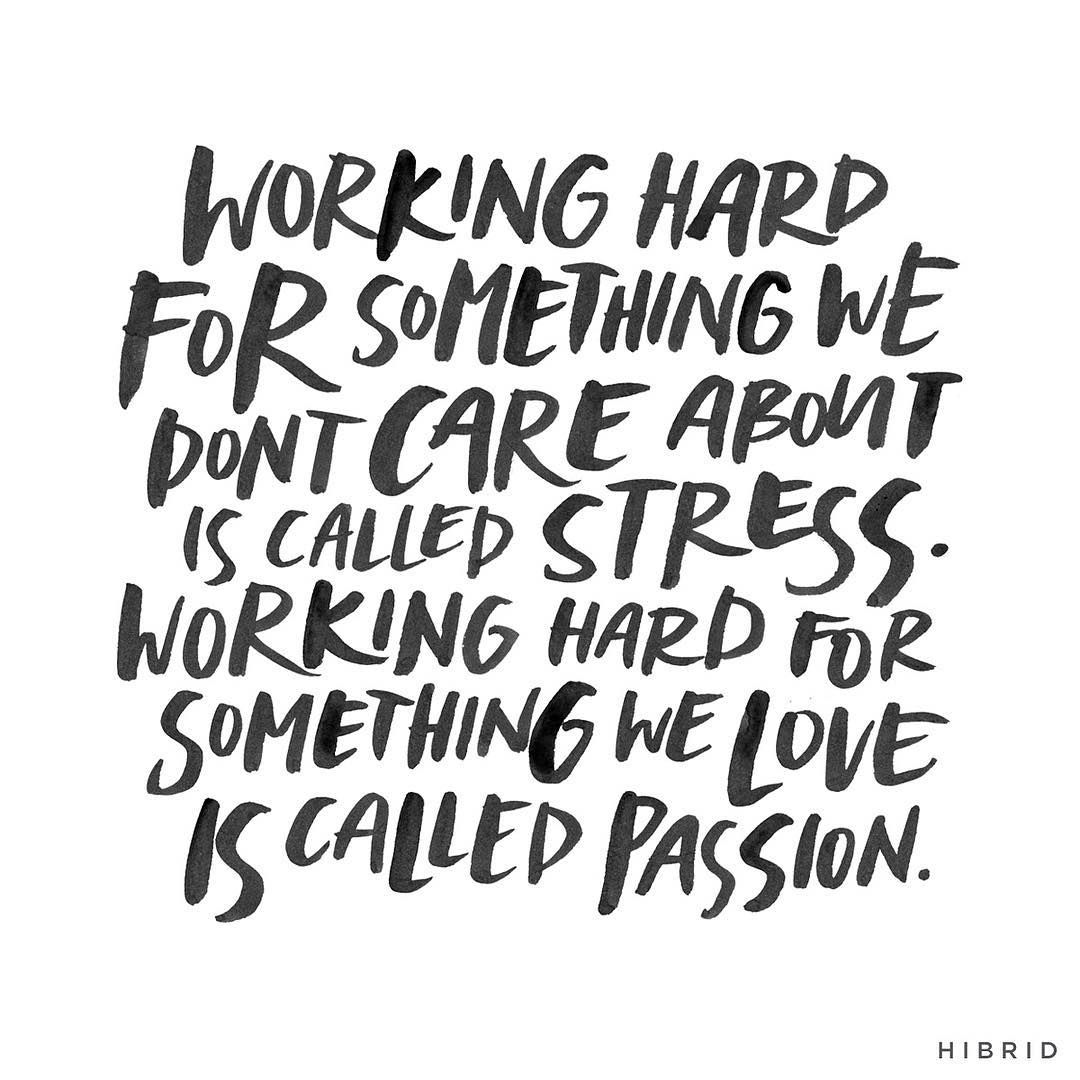 WORKING HARD
FOR SOMETHING WE
DONT CARE ABOUT
IS CALLED STRESS.
WORKING HARD FOR
SOMETHING WE LOVE
IS CALLED PASSION.
HIBRID